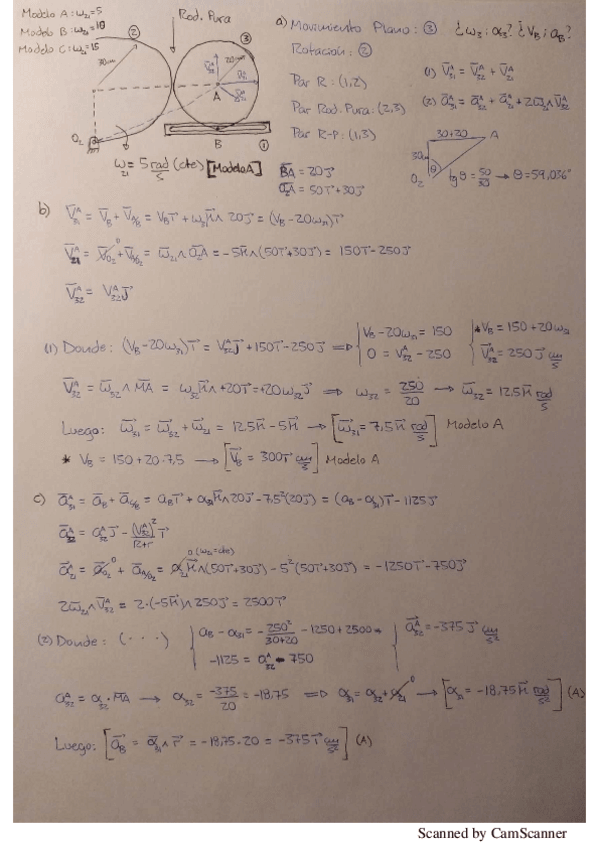 Modelo A: ω₂₁=5
Modelo B: ω₂₁=10
Modelo C: ω₂₁=15
② Rod. Pura ③
30cm 20cm
A
O₂ B ①
ω₂₁ = 5 rad/s (cte) [Modelo A]
a) Movimiento Plano: ③ ¿ω₃; α₃? ¿V_B; a_B?
Rotación: ②
Par R: (1,2)
Par Rod. Pura: (2,3)
Par R-P: (1,3)
(1) V̄ᴬ₃₁ = V̄ᴬ₃₂ + V̄ᴬ₂₁
(2) āᴬ₃₁ = āᴬ₃₂ + āᴬ₂₁ + 2ω̄₂₁∧V̄ᴬ₃₂
30+20 A
30 θ
O₂ tgθ = 50/30 → θ = 59,036°
B̄A = 20J⃗
Ō₂A = 50I⃗+30J⃗
b) V̄ᴬ₃₁ = V̄_B + V̄_A/B = V_B I⃗ + ω₃₁K⃗∧20J⃗ = (V_B-20ω₃₁)I⃗
V̄ᴬ₂₁ = V̄_O₂⁰ + V̄_A/O₂ = ω̄₂₁∧Ō₂A = -5K⃗∧(50I⃗+30J⃗) = 150I⃗-250J⃗
V̄ᴬ₃₂ = Vᴬ₃₂J⃗
(1) Donde: (V_B-20ω₃₁)I⃗ = Vᴬ₃₂J⃗ + 150I⃗-250J⃗ ⇒ { V_B-20ω₃₁ = 150 { * V_B = 150+20ω₃₁
0 = Vᴬ₃₂ - 250 V̄ᴬ₃₂ = 250J⃗ cm/s
V̄ᴬ₃₂ = ω̄₃₂∧M̄A = ω₃₂K⃗∧+20I⃗ = +20ω₃₂J⃗ ⇒ ω₃₂ = 250/20 → ω̄₃₂ = 12.5K⃗ rad/s
Luego: ω̄₃₁ = ω̄₃₂ + ω̄₂₁ = 12.5K⃗ - 5K⃗ → [ω̄₃₁ = 7,5K⃗ rad/s] Modelo A
* V_B = 150+20·7,5 → [V̄_B = 300I⃗ cm/s] Modelo A
c) āᴬ₃₁ = ā_B + ā_A/B = a_B I⃗ + α₃₁K⃗∧20J⃗ - 7,5²(20J⃗) = (a_B-α₃₁)I⃗ - 1125J⃗
āᴬ₃₂ = aᴬ₃₂J⃗ - (Vᴬ₃₂)²/(R+r) I⃗
0 (ω₂₁=cte)
āᴬ₂₁ = ā_O₂⁰ + ā_A/O₂ = α₂₁K⃗∧(50I⃗+30J⃗) - 5²(50I⃗+30J⃗) = -1250I⃗-750J⃗
2ω̄₂₁∧V̄ᴬ₃₂ = 2·(-5K⃗)∧250J⃗ = 2500I⃗
(2) Donde: (· · ·) { a_B - α₃₁ = -250²/(30+20) - 1250 + 2500 { āᴬ₃₂ = -375J⃗ cm/s²
-1125 = aᴬ₃₂ - 750
aᴬ₃₂ = α₃₂·M̄A → α₃₂ = -375/20 = -18,75 ⇒ α₃₁ = α₃₂ + α₂₁⁰ → [α₃₁ = -18,75K⃗ rad/s²] (A)
Luego: [ā_B = ᾱ₃₁∧r⃗ = -18,75·20 = -375I⃗ cm/s²] (A)
Scanned by CamScanner